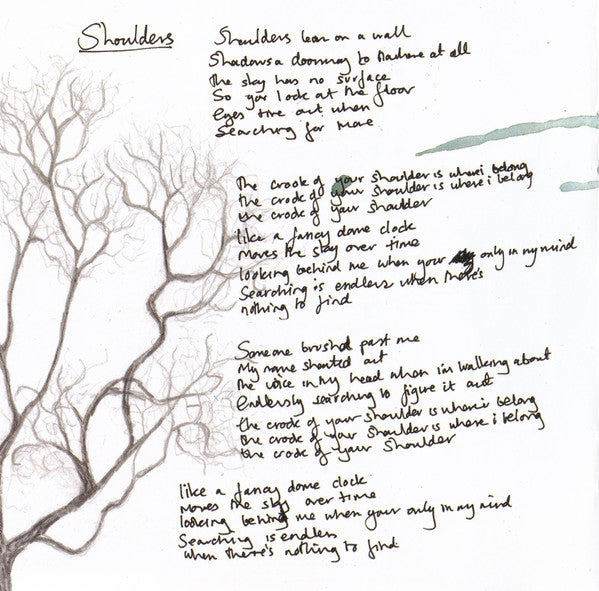 Shoulders
Shoulders lean on a wall
Shadows a doorway to Nowhere at all
The sky has no surface
So you look at the floor
eyes tire out when
Searching for more
The crook of your shoulder is where i belong
the crook of your shoulder is where i belong
the crook of your shoulder
like a fancy dome clock
Moves the sky over time
looking behind me when your only in my mind
Searching is endless when there's
nothing to find
Someone brushed past me
My name shouted out
The voice in my head when i'm walking about
endlessly searching to figure it out
the crook of your shoulder is where i belong
the crook of your shoulder is where i belong
the crook of your shoulder
like a fancy dome clock
moves the sky over time
looking behind me when your only in my mind
Searching is endless
when there's nothing to find